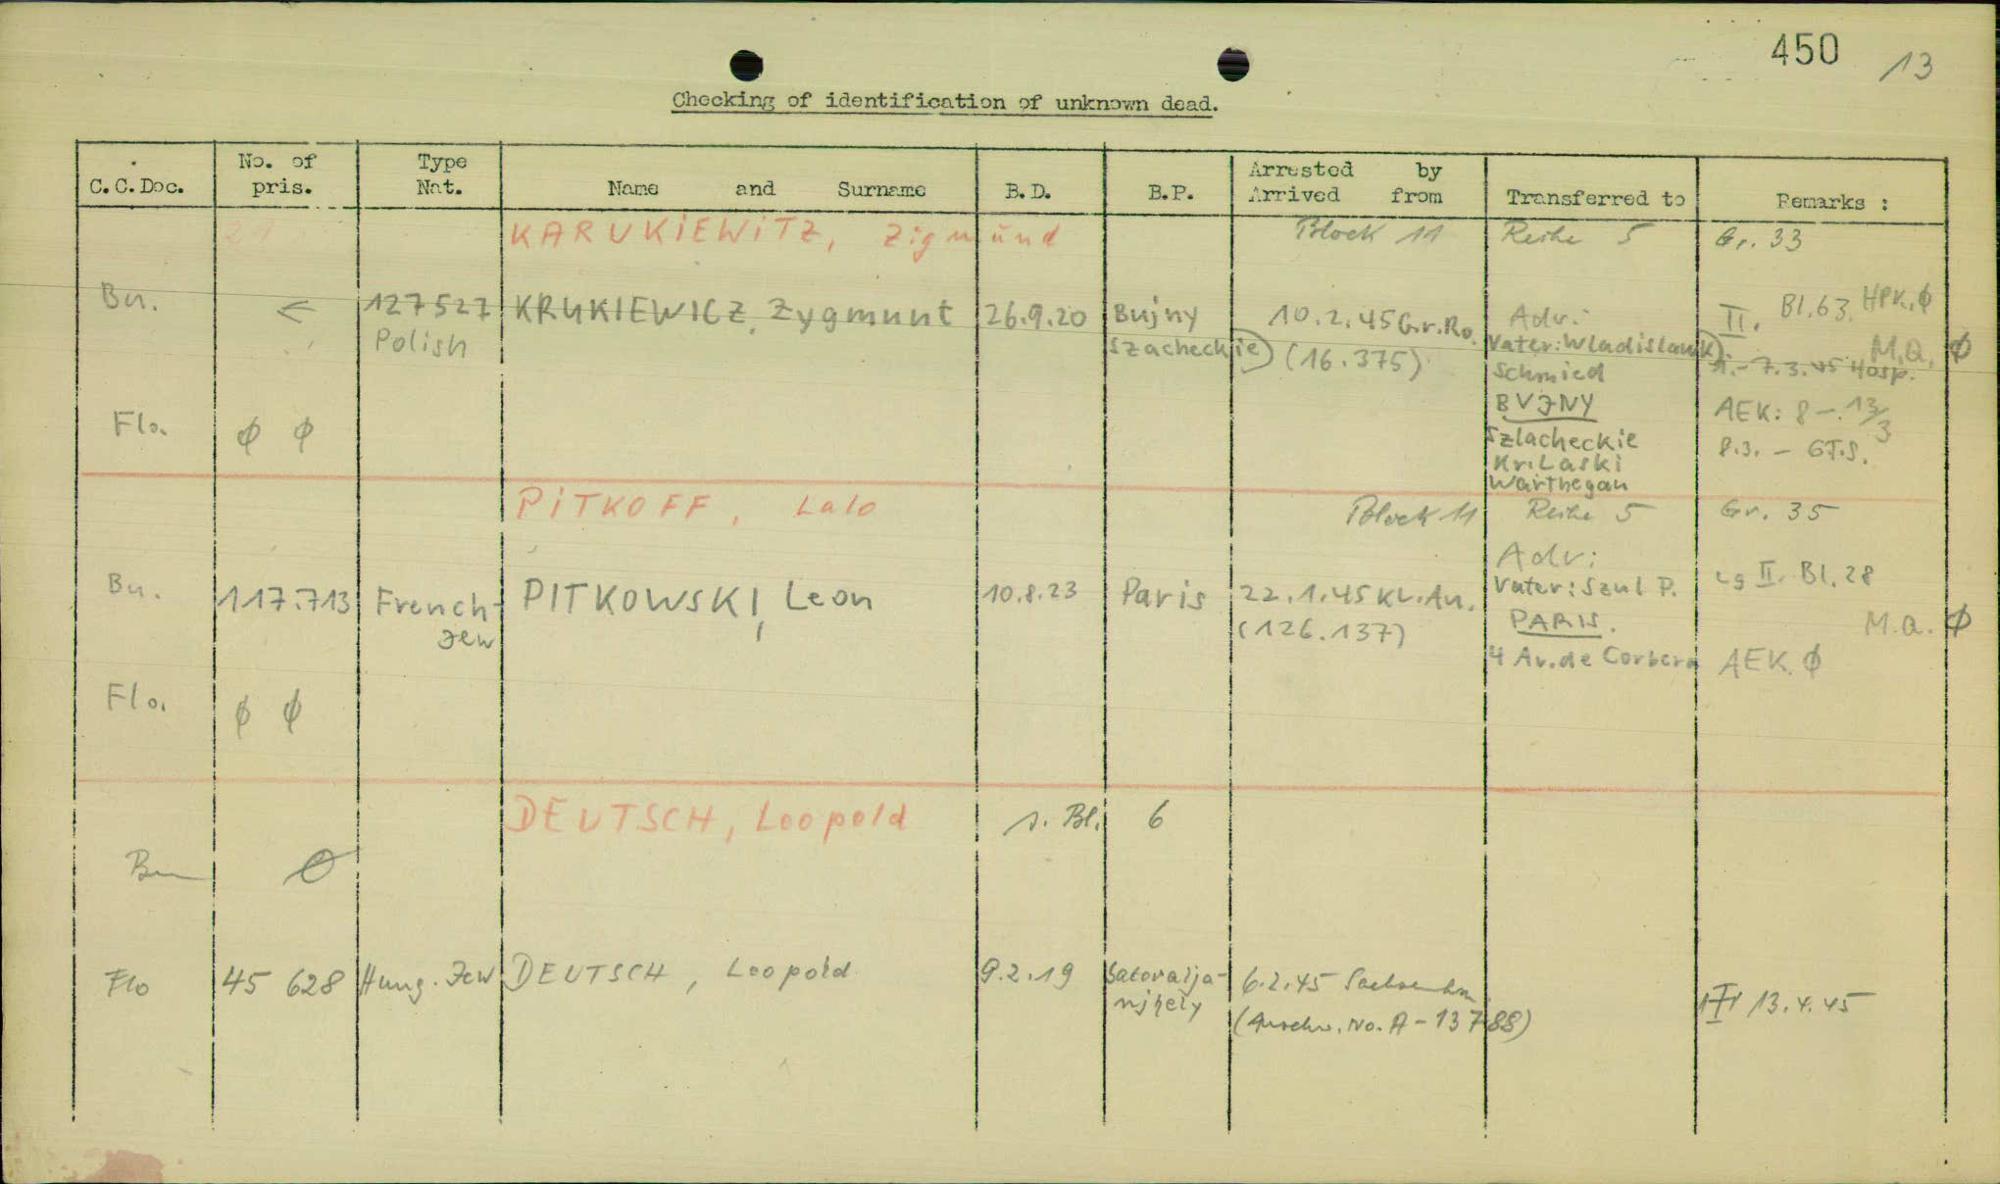 450 13
Checking of identification of unknown dead.
C.C.Doc.
No. of pris.
Type Nat.
Name and Surname
B.D.
B.P.
Arrested by
Arrived from
Transferred to
Remarks :
KARUKIEWITZ, Zigmund Block 11 Reihe 5 Gr. 33
Bu. ← 127527 KRUKIEWICZ, Zygmunt 26.9.20 Bujny 10.2.45 Gr.Ro. Adr.: II. Bl.63. HPK. Ø
Polish Szacheckie) (16.375) Vater: Wladislaw(k). M.Q. Ø
Schmied 1.- 7.3.45 Hosp.
BUJNY AEK: 8 - 13/3
Flo. Ø Ø Szlacheckie 8.3. -
Kr. Laski
Warthegau
PITKOFF, Lalo Block 11 Reihe 5 Gr. 35
Adr:
Bu. 117.713 French- PITKOWSKI, Leon 10.8.23 Paris 22.1.45 KL.Au. Vater: Szul P. Lg II. Bl. 28
Jew (126.137) PARIS. M.Q. Ø
4 Av. de Corbera AEK. Ø
Flo. Ø Ø
DEUTSCH, Leopold s. Bl. 6
Bu Ø
Flo 45 628 Hung. Jew DEUTSCH, Leopold 9.2.19 Satoralja- 6.2.45 Sachsenhn
ujhely (Auschw. No. A-13788) 13.4.45